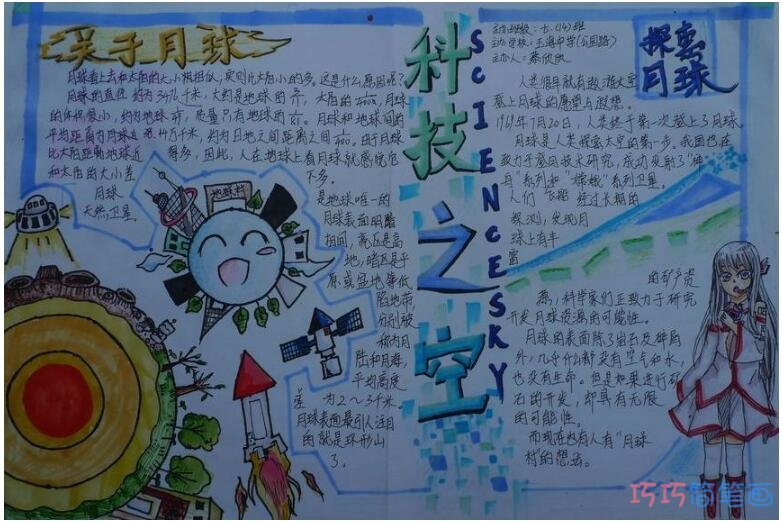 关于月球
月球看上去和太阳的大小相似,实则比太阳小的多。这是什么原因呢?
月球的直径约为3476千米,大约是地球的
月球和地球间的
平均距离为
由于月球
比太阳距离地球近得多,因此,人在地球上看月球就感觉它
和太阳的大小差不多。
月球是地球唯一的
天然卫星
月球表面明暗
相间,亮区是高
地,暗区是平
原或盆地等低
陷地带
分别被
称为月
陆和月海,
平均高度
差为2~3千米。
月球表面最引人注目
的就是环形山
了。
地球村
科技之空
SCIENCESKY
主办班级:七.(14)班
主办人:
探离月球
人类很早就有
登上月球的愿望与设想。
1969年7月20日,人类终于第一次登上了月球。
月球是人类探索太空的第一步。我国也在
致力于登月技术研究,成功发射了“神
舟”系列和“嫦娥”系列卫星。
人们
经过长期的
探测,发现月
球上有丰
富
的矿产资
源,科学家们正致力于研究
开发月球资源的可能性。
月球的表面除了岩石及碎屑
外,几乎什么都没有空气和水,
也没有生命。但是如果进行矿
石的开发,即具有无限
的可能性。
而现在也有人有“月球
村”的想法。
巧巧简笔画